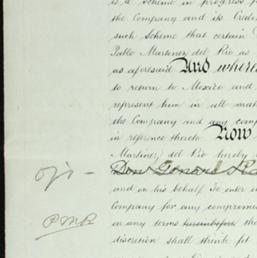 is a scheme in progress f
the Company and its Cred
such Scheme that certain
Pablo Martinez del Rio as
as aforesaid And where
to return to Mexico and
represent him in all mat
the Company and any comp
in reference thereto Now
Martinez del Rio hereby
Don
and on his behalf To enter in
Company for any compromise
on any terms the
discretion shall think fit
P M R